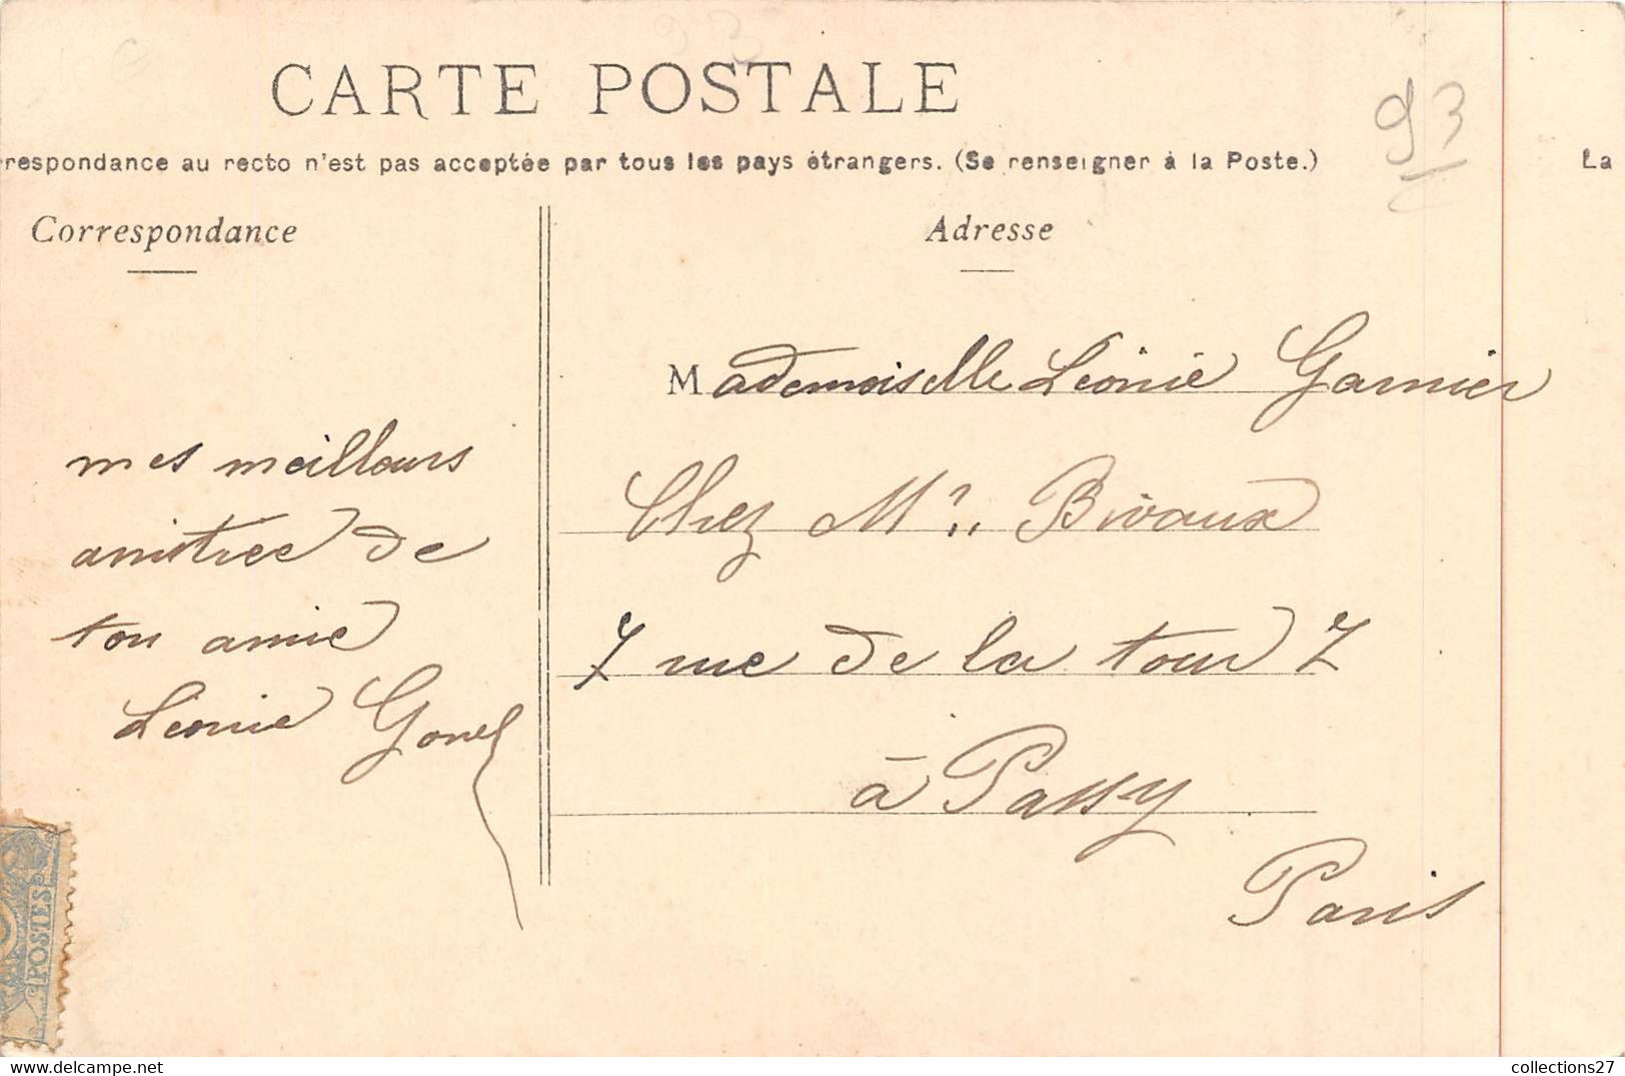 CARTE POSTALE
93
respondance au recto n'est pas acceptée par tous les pays étrangers. (Se renseigner à la Poste.)
La
Correspondance
Adresse
mes meilleurs
amitiee de
ton amie
Léonie
Mademoiselle Léonie Garnier
Chez Mr. Bivaux
7 rue de la tour 7
à Passy
Paris
POSTES
collections27